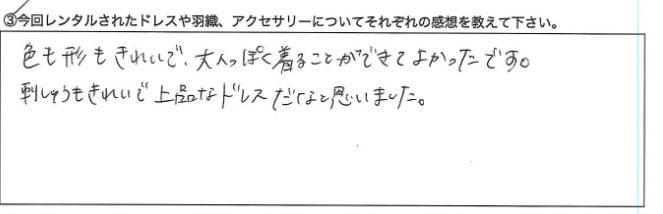 ③今回レンタルされたドレスや羽織、アクセサリーについてそれぞれの感想を教えて下さい。
色も形もきれいで、大人っぽく着ることができてよかったです。
刺しゅうもきれいで上品なドレスだなと思いました。